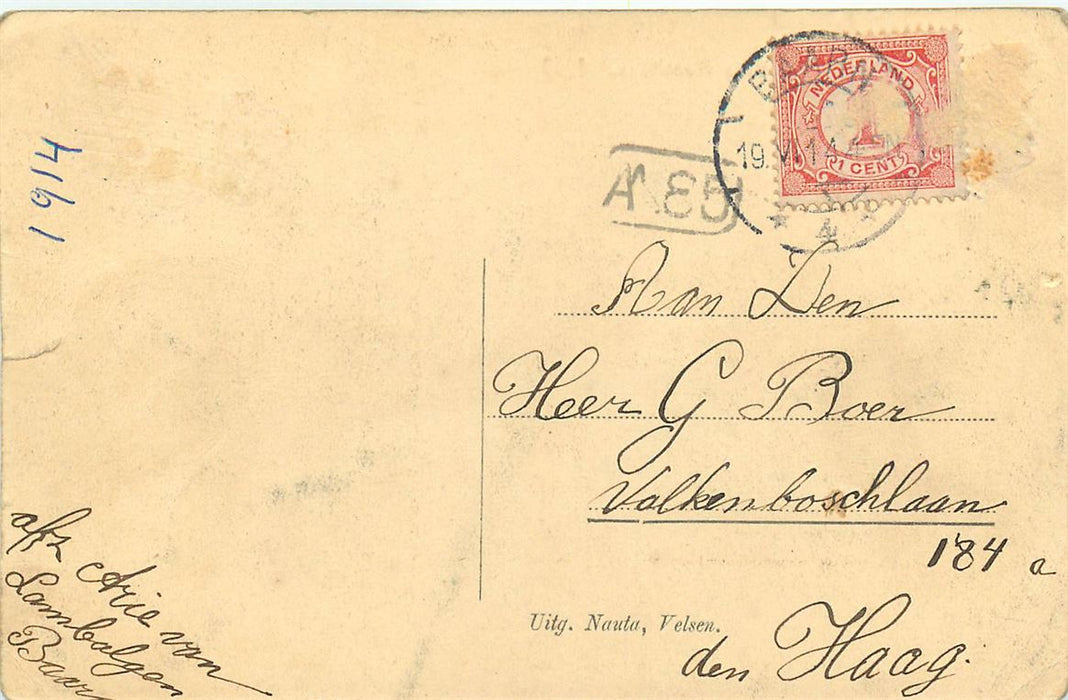 1914
NEDERLAND
1
1 CENT
19.VI.14
4
Aan Den
Heer G Boer
Valkenboschlaan
184 a
den Haag.
Uitg. Nauta, Velsen.
afz Arie van
Lambalgen
Baarn